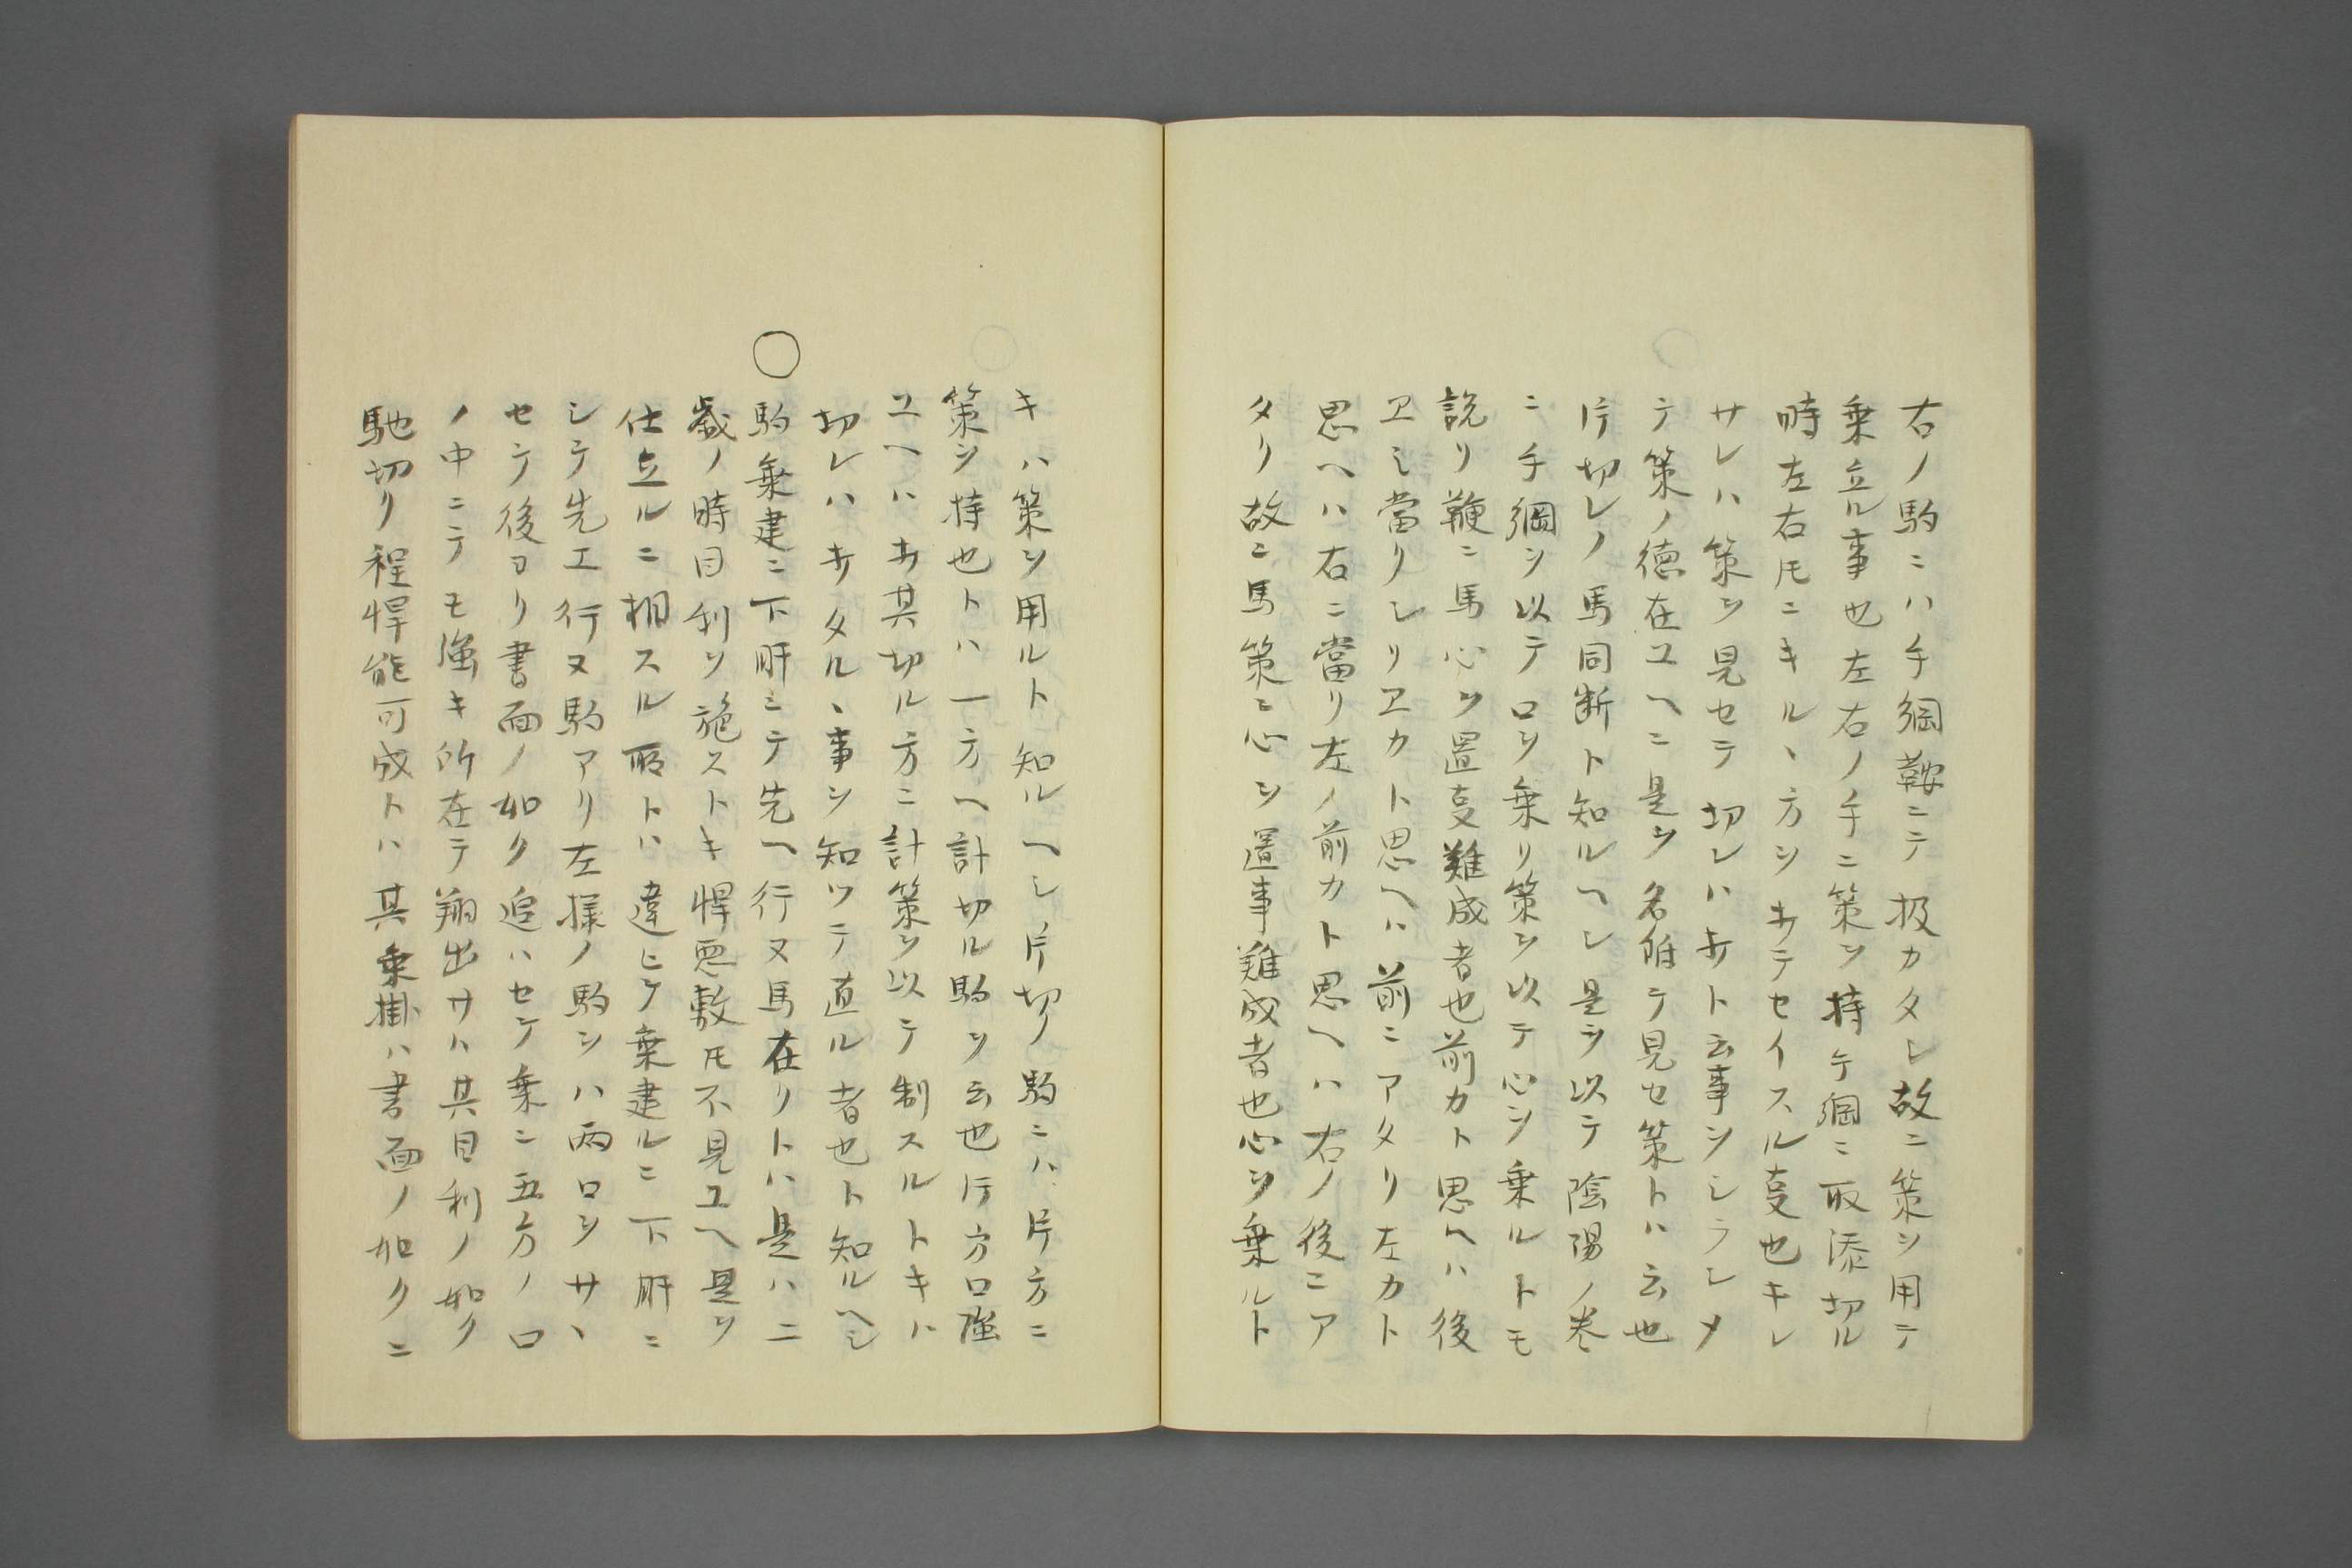 右ノ駒ニハ手綱鞍ニテ扱カタシ故ニ策ヲ用テ
乗立ル事也左右ノ手ニ策ヲ持テ綱ニ取添切ル
時左右𪜈ニキルヽ方ヲ打テセイスル㕝也キレ
サレハ策ヲ見セテ切レハ打ト云事ヲシラシメ
テ策ノ徳在ユヘニ是ヲ名附テ見セ策トハ云也
片切レノ馬同断ト知ルヘシ是ヲ以テ陰陽ノ巻
ニ手綱ヲ以テ口ヲ乗リ策ヲ以テ心ヲ乗ルトモ
説リ鞭ニ馬心ヲ置㕝難成者也前カト思ヘハ後
ヱニ當リシリヱカト思ヘハ前ニアタリ左カト
思ヘハ右ニ當リ左ノ前カト思ヘハ右ノ後ニア
タリ故ニ馬策ニ心ヲ置事難成者也心ヲ乗ルト
キハ策ヲ用ルト知ルヘシ片切ノ駒ニハ片方ニ
策ヲ持也トハ一方ヘ計切ル駒ヲ云也片方口強
ユヘハ打其切ル方ニ計策ヲ以テ制スルトキハ
切レハ打タルヽ事ヲ知ツテ直ル者也ト知ルヘシ
○駒乗建ニ下肝ニテ先ヘ行ヌ馬在リトハ是ハ二
歳ノ時目利ヲ施ストキ悍悪敷𪜈不見ユヘ是ヲ
仕立ルニ相スル所トハ違ヒテ乗建ルニ下肝ニ
シテ先エ行ヌ駒アリ左様ノ駒ヲハ両口ヲサヽ
セテ後ヨリ書面ノ如ク追ハセテ乗ニ五方ノ口
ノ中ニテモ強キ所在テ翔出サハ其目利ノ如ク
馳切リ程悍能可成トハ其乗掛ハ書面ノ如クニ